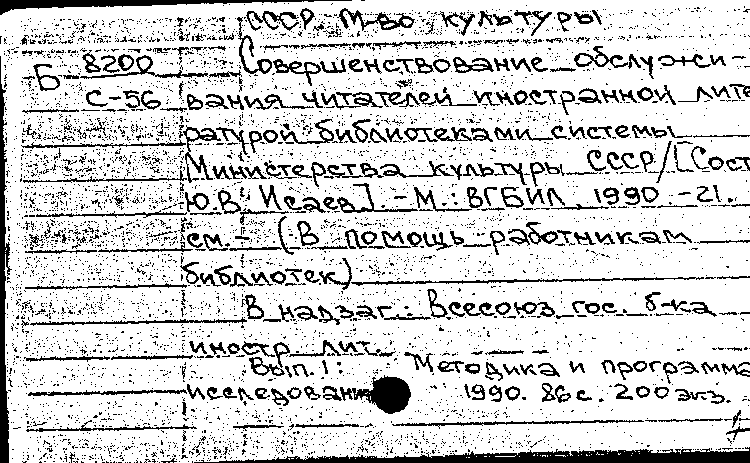 СССР. М-во культуры
Б 8200 Совершенствование обслужи-
С-56 вания читателей иностранной лите
ратурой библиотеками системы
Министерства культуры СССР/[Сост
Ю.В. Исаев]. - М.: ВГБИЛ, 1990 - 21.
см. - (В помощь работникам
библиотек)
В надзаг.: Всесоюз. гос. б-ка
иностр. лит.
Вып. 1: Методика и программа
исследования 1990. 86 с. 200 экз.